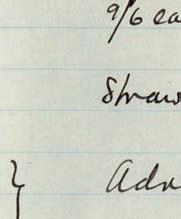 9/6 ea
Straw
Adv